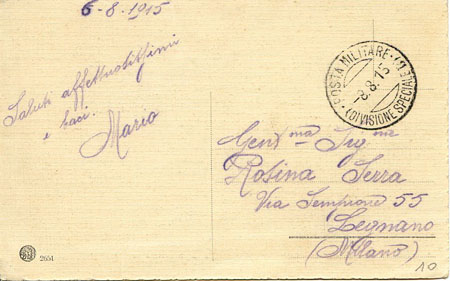 6-8-1915
Saluti affettuosissimi
e baci.
Mario
POSTA MILITARE
8.8.15
(DIVISIONE SPECIALE)
Gent.ma Sig.na
Rosina Serra
Via Sempione 55
Legnano
(Milano)
2651
10